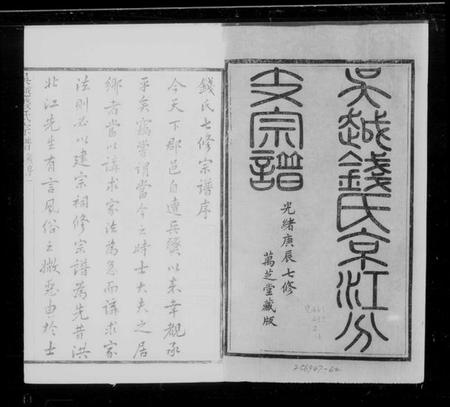 吳越錢氏京江分
支宗譜
光緒庚辰七修
萬芝堂藏版
256947-62
錢氏七修宗譜序
今天下郡邑自遭兵燹以來幸覩承
平矣竊嘗謂當今之時士大夫之居
鄉者當以講求家法為急而講求家
法則必以建宗祠修宗譜為先昔洪
北江先生有言風俗之敝悉由於士